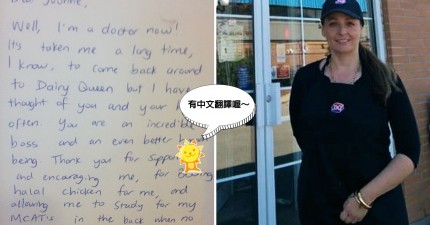 Yvonne,
Well, I'm a doctor now!
It's taken me a long time,
I know, to come back around
to Dairy Queen but I have
thought of you and your
often. You are an incredible
boss and an even better
being. Thank you for
and encouraging me, for
halal chicken for me, and
allowing me to study for my
MCAT's in the back when no
有中文翻譯喔～
DQ
DQ